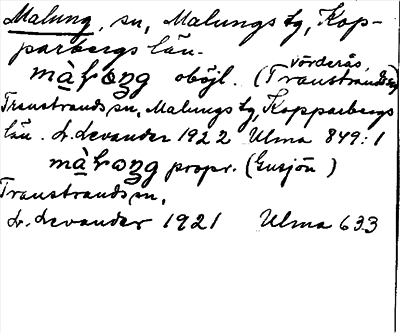 Malung, sn, Malungs tg, Kop-
parbergs län.
màłoŋg oböjl. (Vörderås, Transtrands sn)
Transtrands sn, Malungs tg, Kopparbergs
län. L. Levander 1922 Ulma 849:1
màłoŋg propr. (Gusjön)
Transtrands sn,
L. Levander 1921 Ulma 633